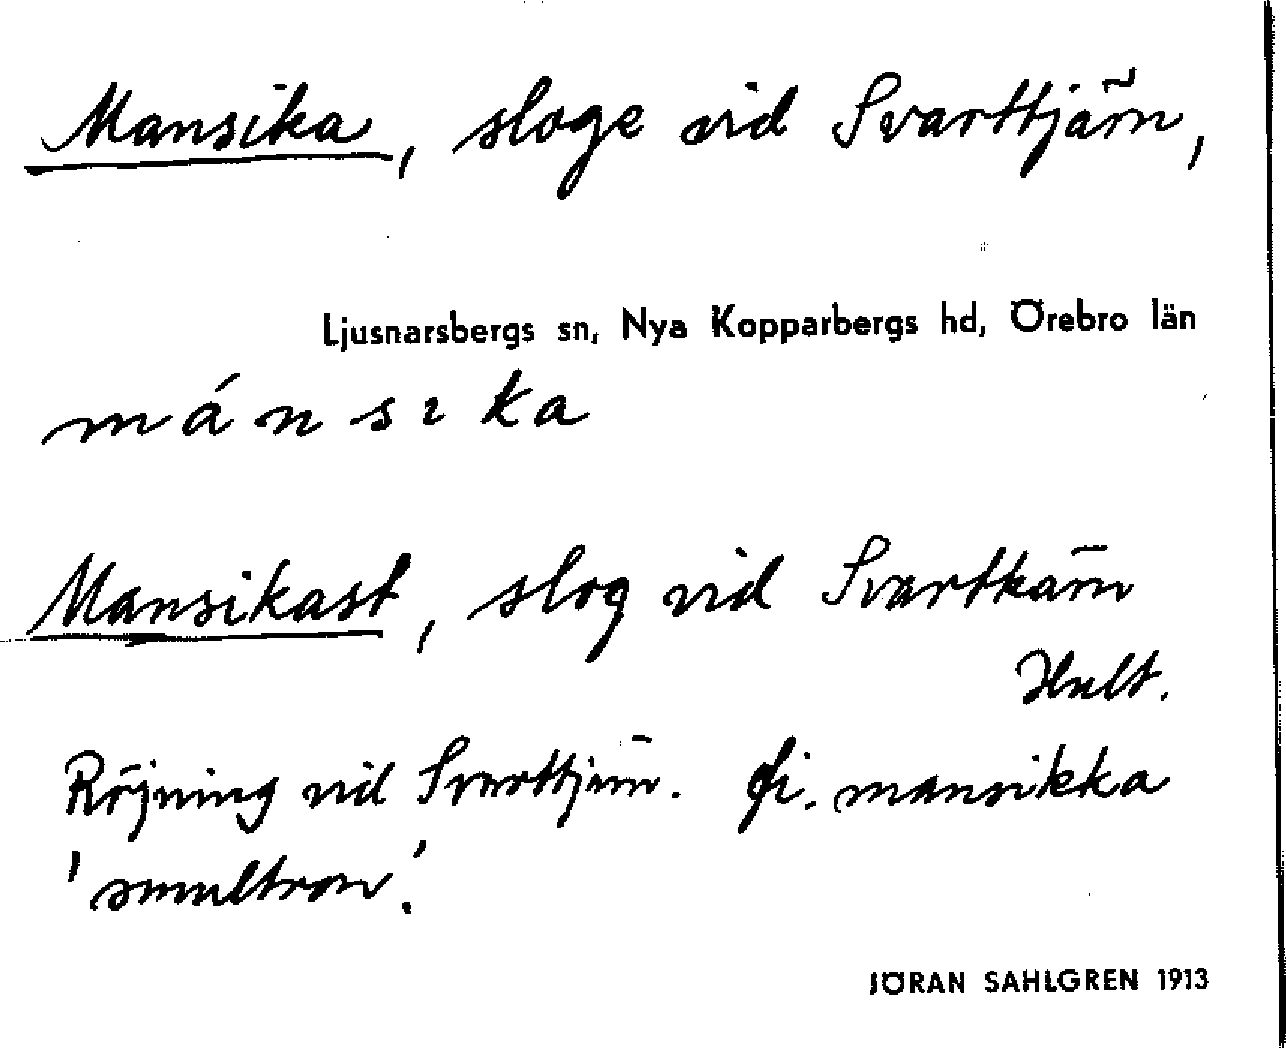 Mansika, sloge vid Svarttjärn,
Ljusnarsbergs sn, Nya Kopparbergs hd, Örebro län
mánsıka
Mansikast, slog vid Svartkärn
Hult.
Röjning vid Svarttjärn. fi. mansikka
'smultron'.
JÖRAN SAHLGREN 1913